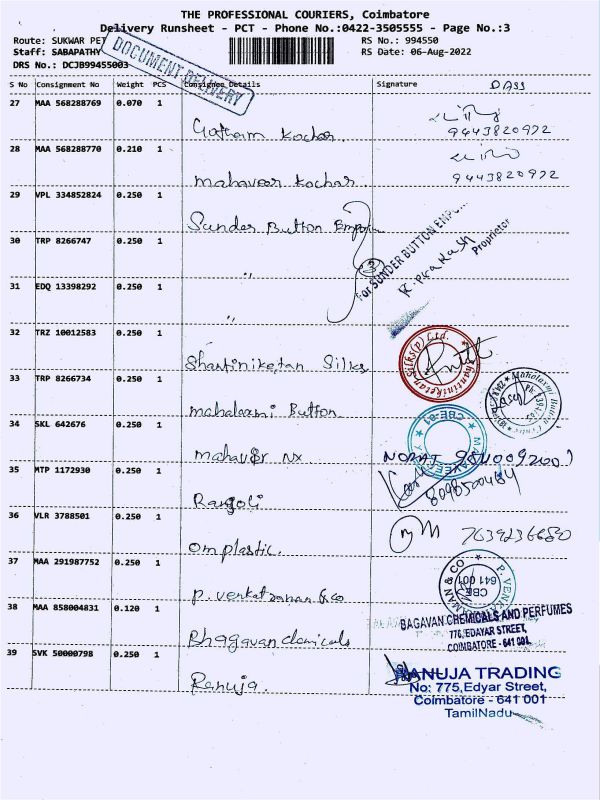 THE PROFESSIONAL COURIERS, Coimbatore
Delivery Runsheet - PCT - Phone No.:0422-3505555 - Page No.:3
Route: SUKWAR PET
RS No.: 994550
Staff: SABAPATHY
RS Date: 06-Aug-2022
DRS No.: DCJB99455003
DOCUMENT DELIVERY
S No Consignment No Weight PCS Consignee Details Signature DASS
27 MAA 568288769 0.070 1 Gotham Kochar. 9443820972
28 MAA 568288770 0.210 1 mahaveer kochar. 9443820972
29 VPL 334852824 0.250 1 Sunder Button Emporium
30 TRP 8266747 0.250 1 "
3
For SUNDER BUTTON EMPO
R. Prakash
Proprietor
31 EDQ 13398292 0.250 1 "
32 TRZ 10012583 0.250 1 Shantiniketan Silks
Shantiniketan Silks(p) Ltd.
33 TRP 8266734 0.250 1 mahalaxmi Button
34 SKL 642676 0.250 1 mahaveer NX
CBE-01
35 MTP 1172930 0.250 1 Rangoli 8098500484
36 VLR 3788501 0.250 1 Om plastic. 7639236680
37 MAA 291987752 0.250 1 P. Venkatraman & co
CBE
641 001
38 MAA 858004831 0.120 1 Bhagavan chemicals
BAGAVAN CHEMICALS AND PERFUMES
776, EDAYAR STREET,
COIMBATORE - 641 001.
39 SVK 50000798 0.250 1 Ranuja.
RANUJA TRADING
No: 775, Edyar Street,
Coimbatore - 641 001
TamilNadu